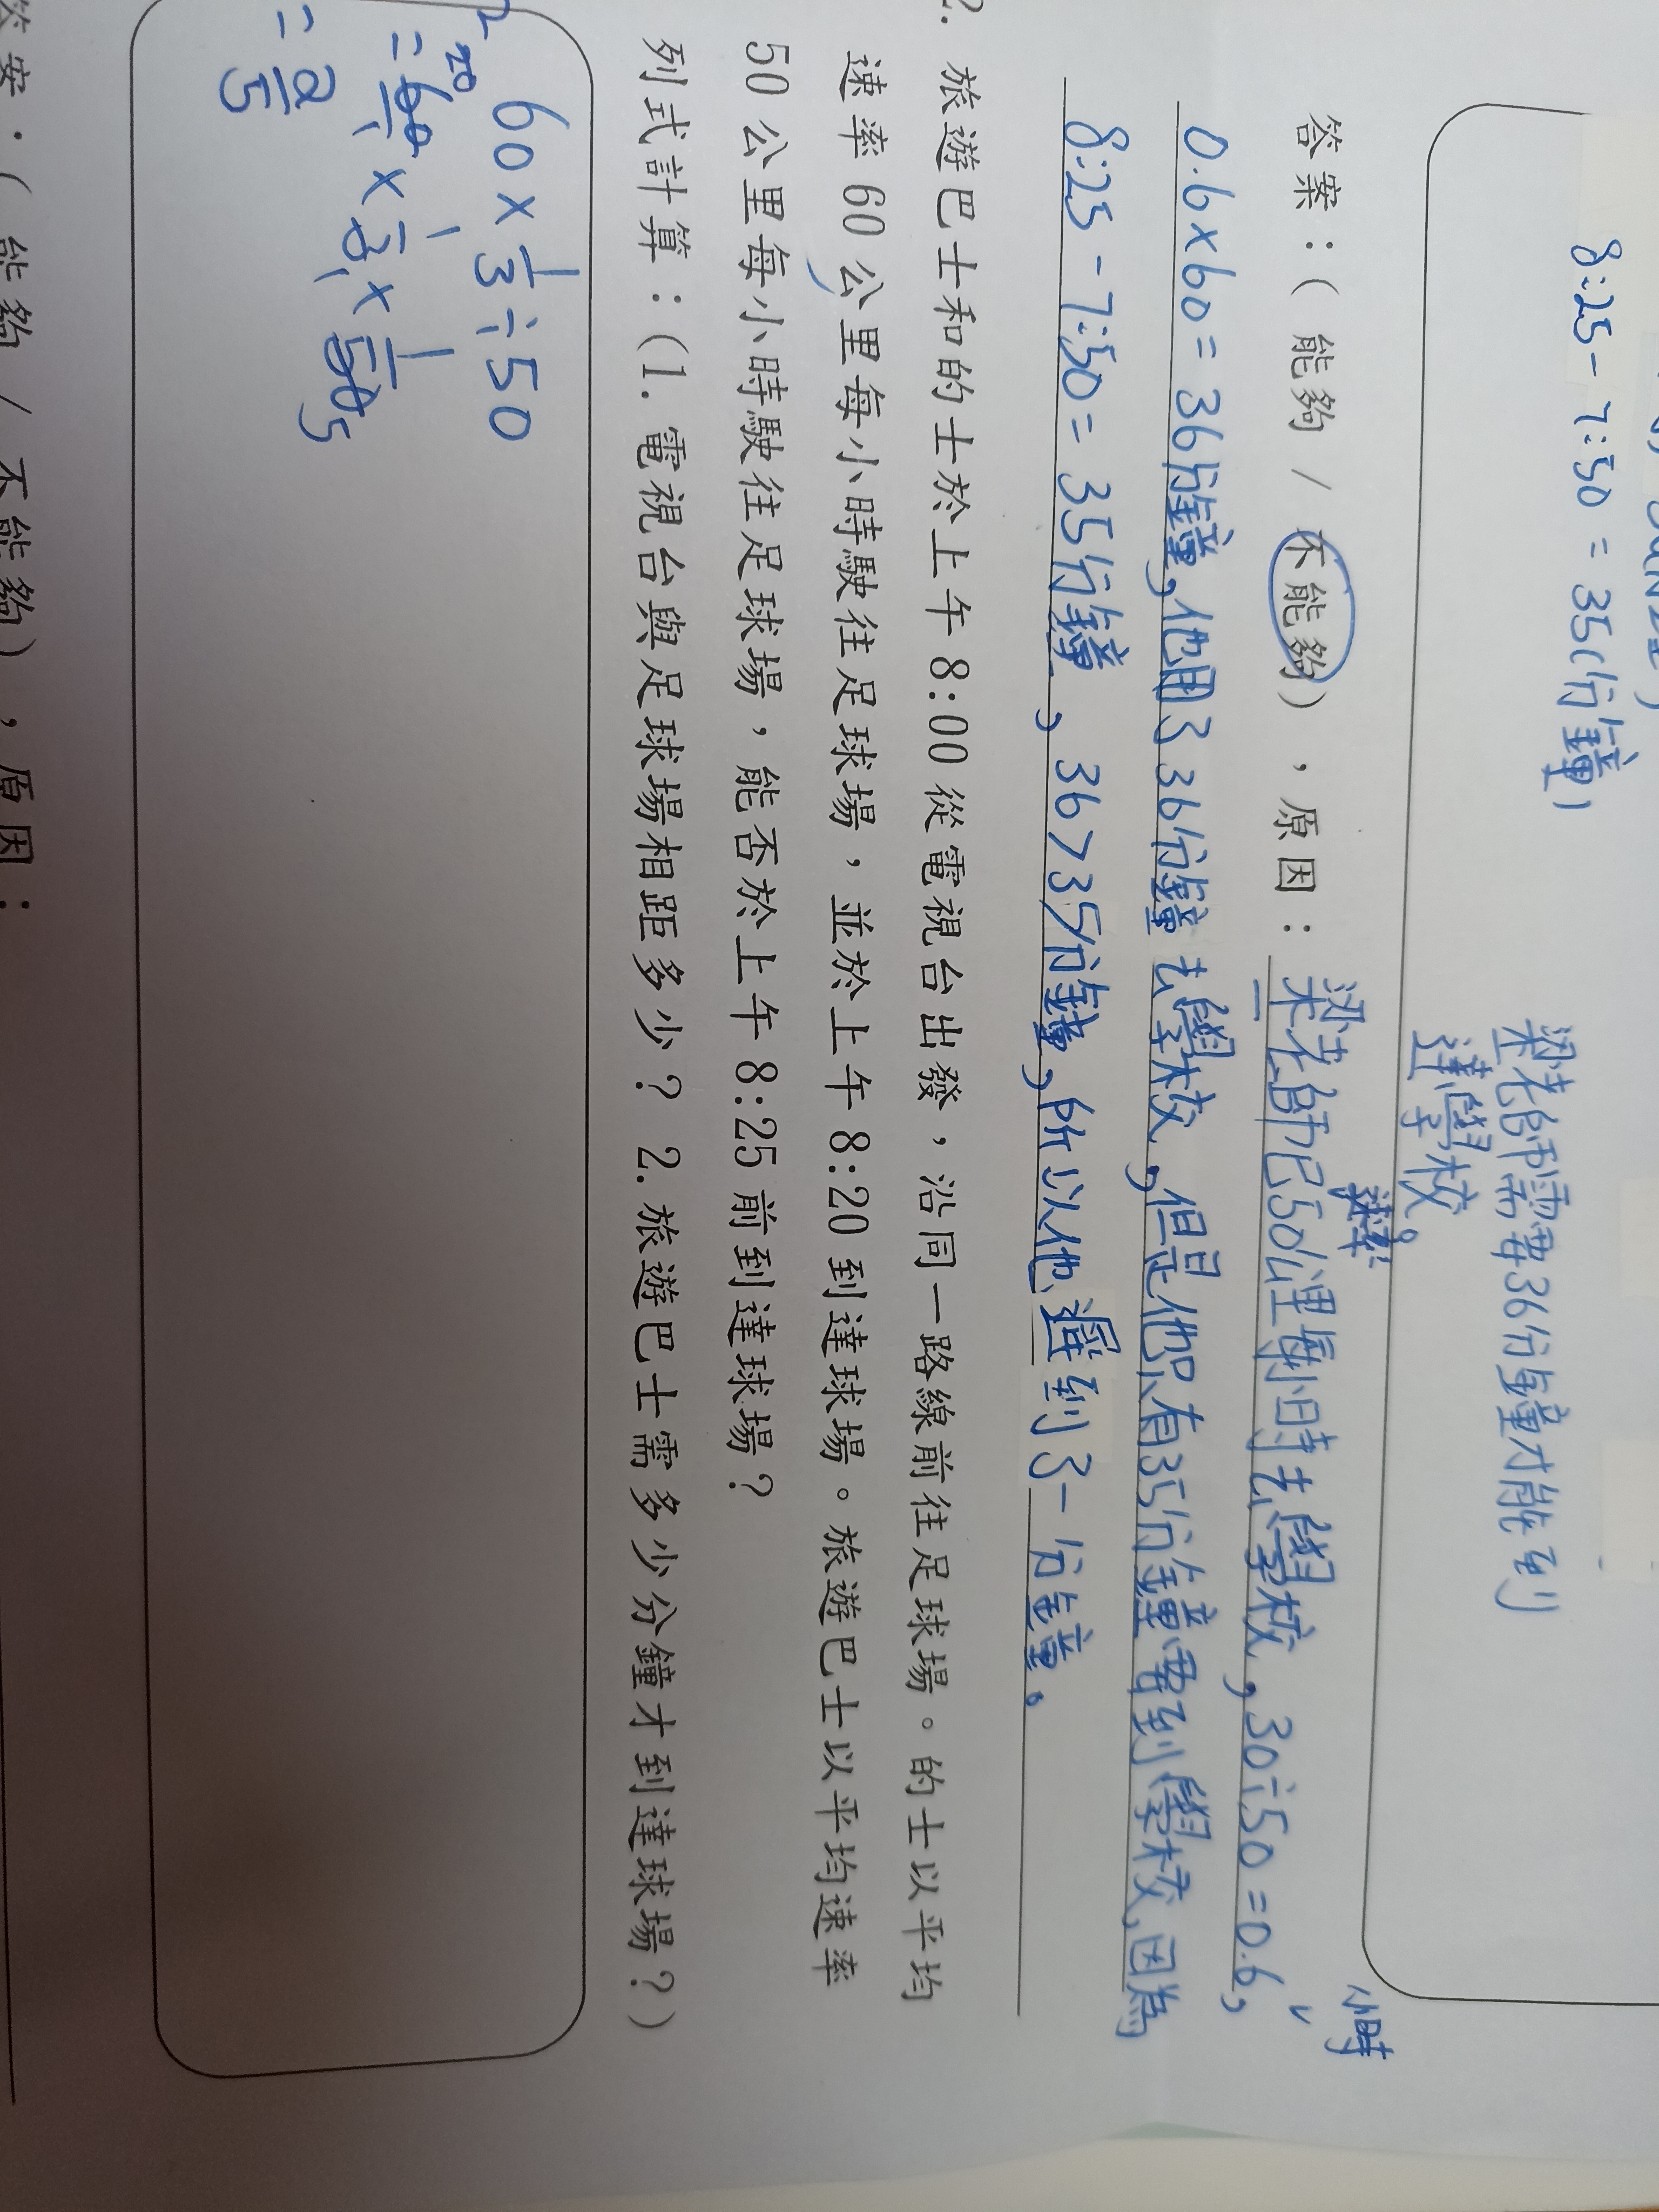 8:25-7:50=35(分鐘)
梁老師需要36分鐘才能到
達學校。
答案：( 能夠 / 不能夠 )，原因：梁老師已50公里每小時去學校，30÷50=0.6，
速率
小時
0.6×60=36分鐘，他用了36分鐘去學校，但是他只有35分鐘要到學校，因為
8:25-7:50=35分鐘，36>35分鐘，所以他遲到了一分鐘。
2. 旅遊巴士和的士於上午 8:00 從電視台出發，沿同一路線前往足球場。的士以平均
速率 60 公里每小時駛往足球場，並於上午 8:20 到達球場。旅遊巴士以平均速率
50 公里每小時駛往足球場，能否於上午 8:25 前到達球場？
列式計算：(1. 電視台與足球場相距多少？ 2. 旅遊巴士需多少分鐘才到達球場？)
60×1/3÷50
=60/1×1/3×1/50
20
1
1
5
2
=2/5
答案：( 能夠 / 不能夠 )，原因：